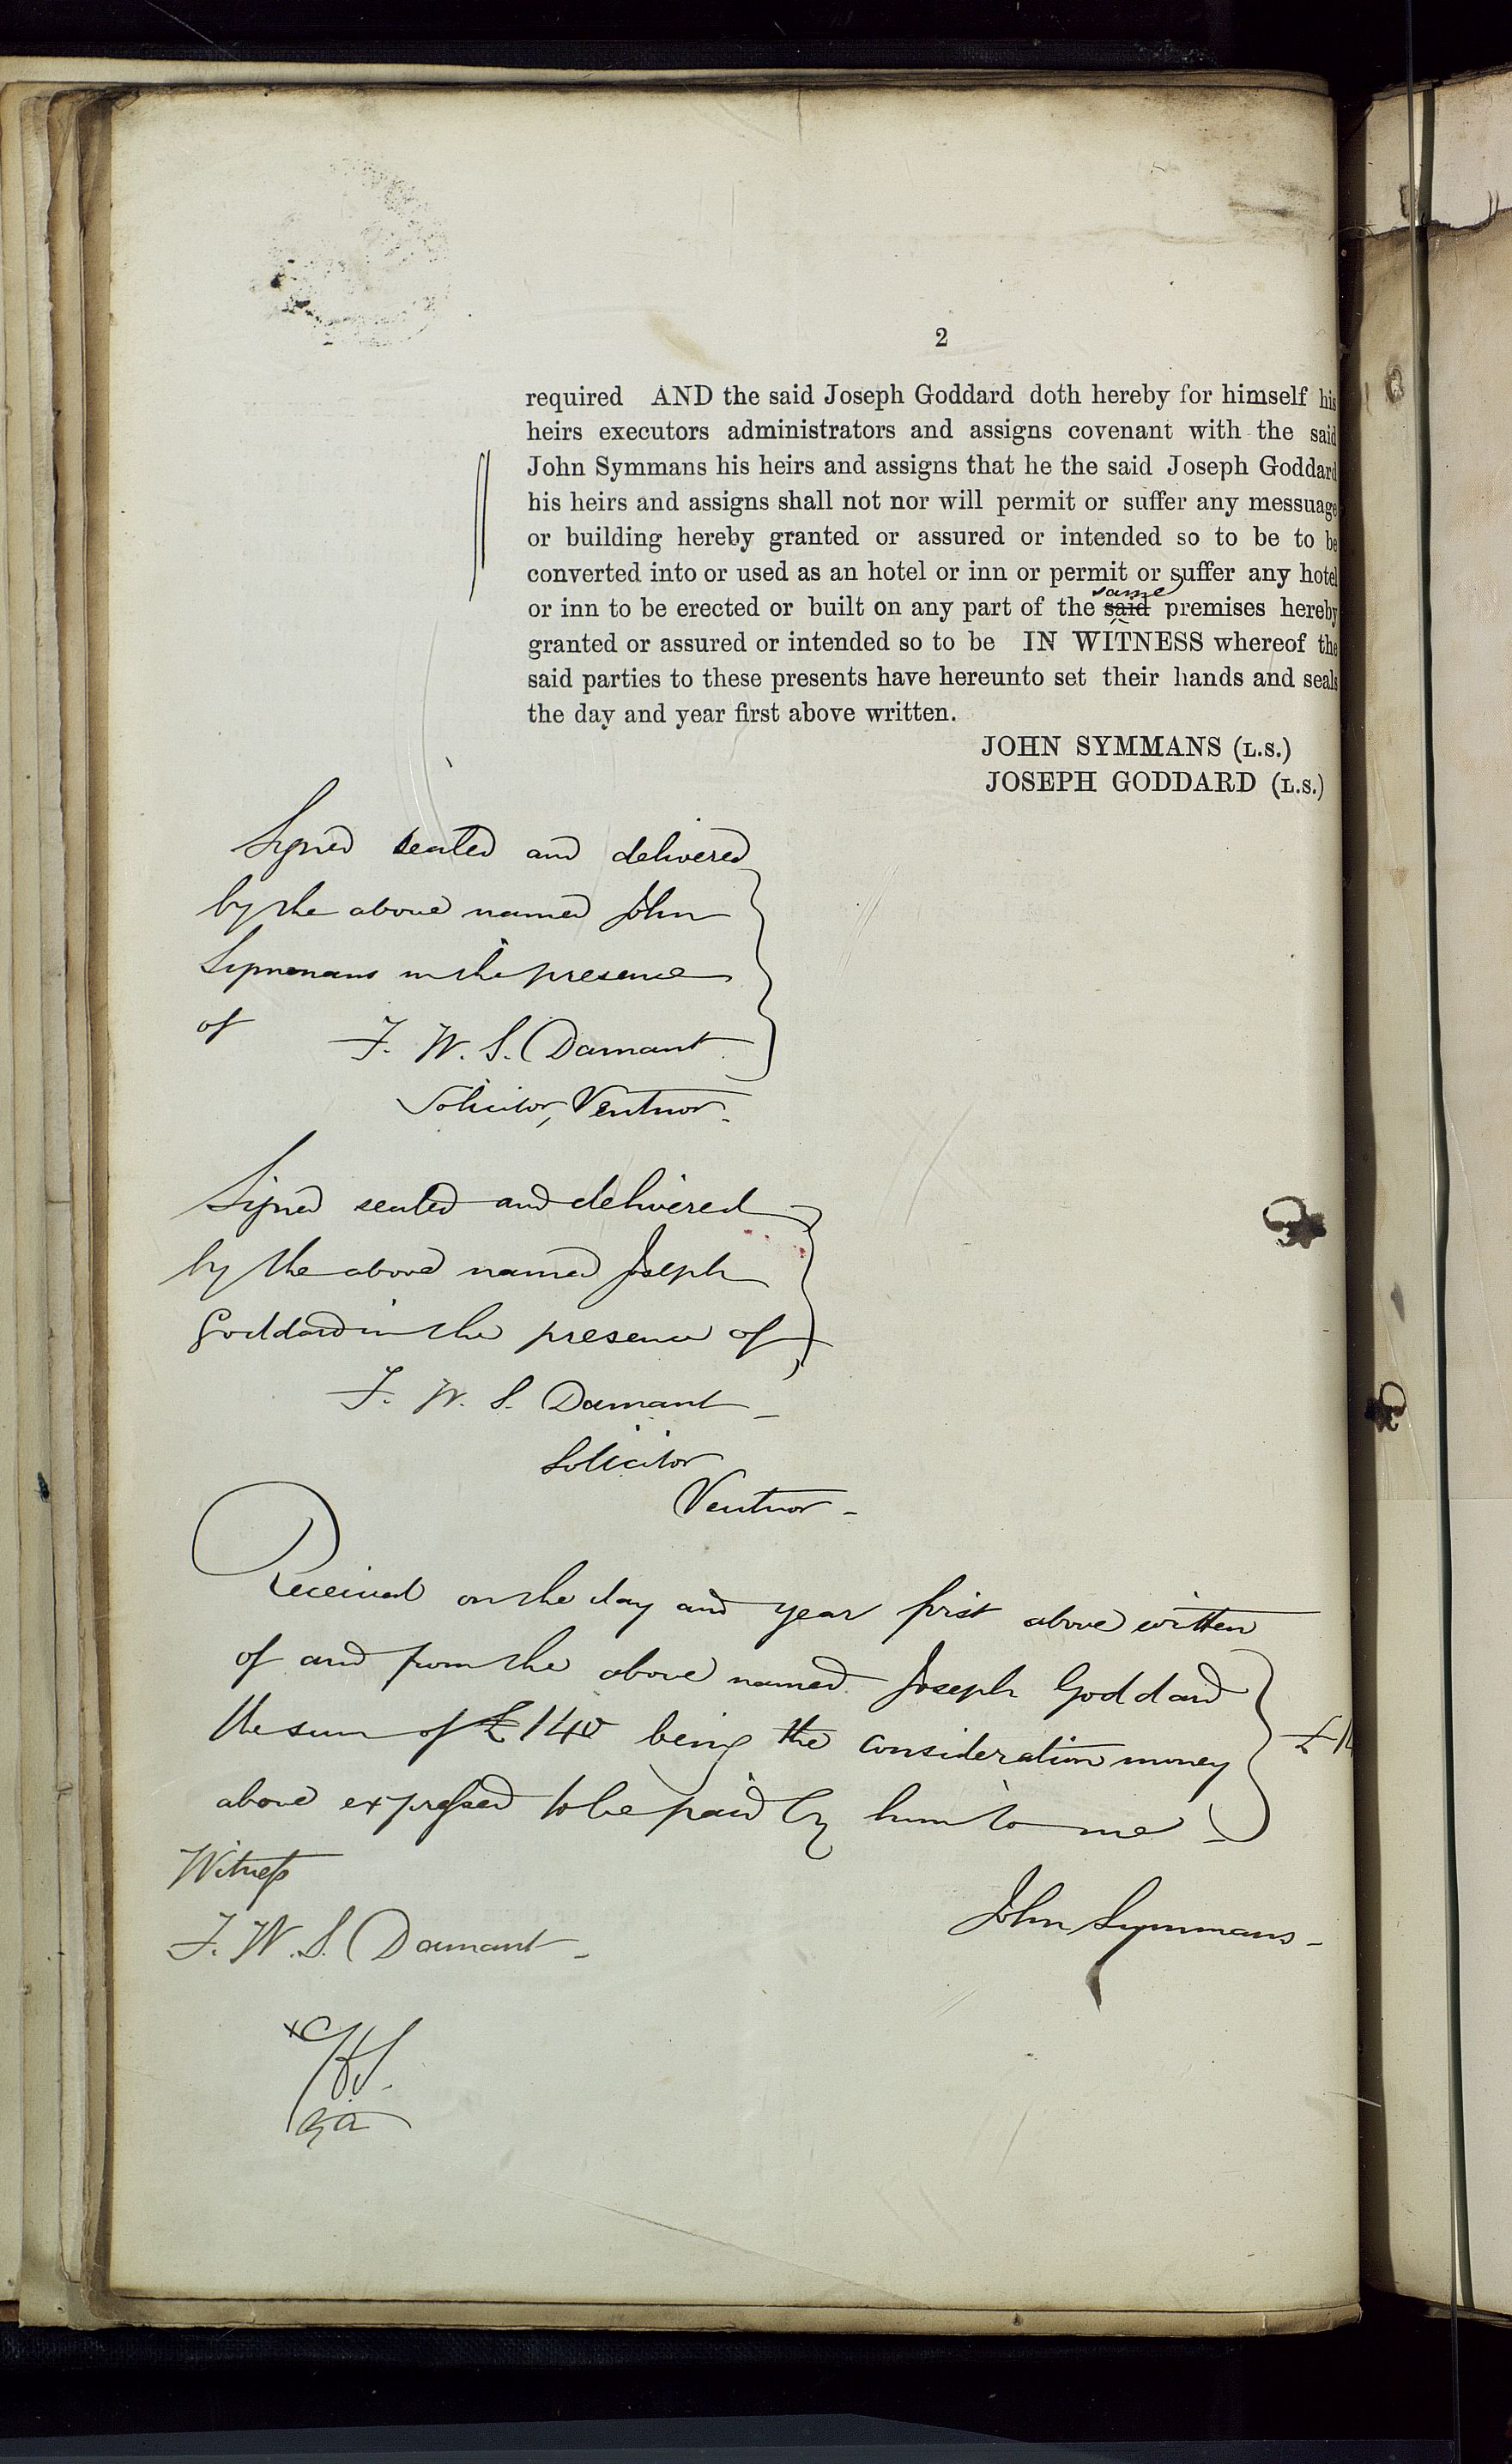 2
required AND the said Joseph Goddard doth hereby for himself his
heirs executors administrators and assigns covenant with the said
John Symmans his heirs and assigns that he the said Joseph Goddard
his heirs and assigns shall not nor will permit or suffer any messuage
or building hereby granted or assured or intended so to be to be
converted into or used as an hotel or inn or permit or suffer any hotel
same
or inn to be erected or built on any part of the said premises hereby
granted or assured or intended so to be IN WITNESS whereof the
said parties to these presents have hereunto set their hands and seals
the day and year first above written.
JOHN SYMMANS (L.S.)
JOSEPH GODDARD (L.S.)
Signed sealed and delivered
by the above named John
Symmans in the presence
of F. W. S. Damant
Solicitor, Ventnor.
Signed sealed and delivered
by the above named Joseph
Goddard in the presence of
F. W. S. Damant
Solicitor
Ventnor
Received on the day and year first above written
of and from the above named Joseph Goddard
the sum of £140 being the consideration money £14
above expressed to be paid by him to me
Witness
John Symmans
F. W. S. Damant